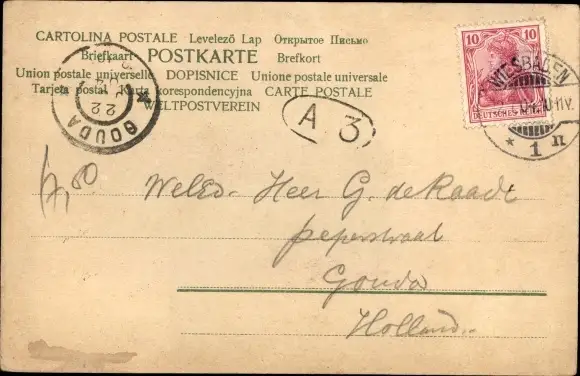 CARTOLINA POSTALE Levelező Lap Открытое Письмо
Briefkaart POSTKARTE Brefkort
Union postale universelle DOPISNICE Unione postale universale
Tarjeta postal Karta korespondencyjna CARTE POSTALE
WELTPOSTVEREIN
GOUDA
22
A 3
10 10
DEUTSCHES REICH
WIESBADEN
* 1 n
7,50
WelEd. Heer G. de Raadt
peperstraat
Gouda
Holland.